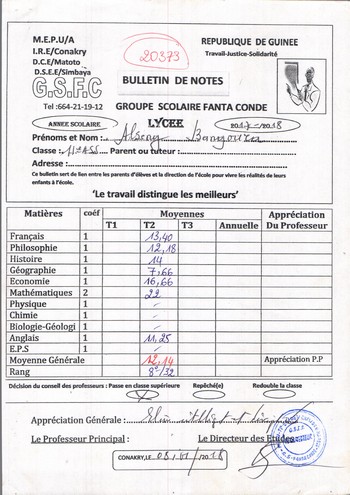 M.E.P.U/A
I.R.E/Conakry
D.C.E/Matoto
D.S.E.E/Simbaya
G.S.F.C
Tel :664-21-19-12
20373
REPUBLIQUE DE GUINEE
Travail-Justice-Solidarité
BULLETIN DE NOTES
GROUPE SCOLAIRE FANTA CONDE
LYCEE
ANNEE SCOLAIRE 2017-2018
Prénoms et Nom : Alseny Bangoura
Classe : 11è A SS Parent ou tuteur :
Adresse :
Ce bulletin sert de lien entre les parents d'élèves et la direction de l'école pour vivre les réalités de leurs
enfants à l'école.
'Le travail distingue les meilleurs'
Matières coéf Moyennes Appréciation
T1 T2 T3 Annuelle Du Professeur
Français 1 13,40
Philosophie 1 12,18
Histoire 1 14
Géographie 1 7,66
Economie 1 16,66
Mathématiques 2 22
Physique 1
Chimie 1
Biologie-Géologi 1
Anglais 1 11,25
E.P.S 1
Moyenne Générale 12,14 Appréciation P.P
Rang 8e/32
Décision du conseil des professeurs : Passe en classe supérieure Repêché(e) Redouble la classe
Appréciation Générale :
Le Professeur Principal : Le Directeur des Etudes
CONAKRY,LE 2018